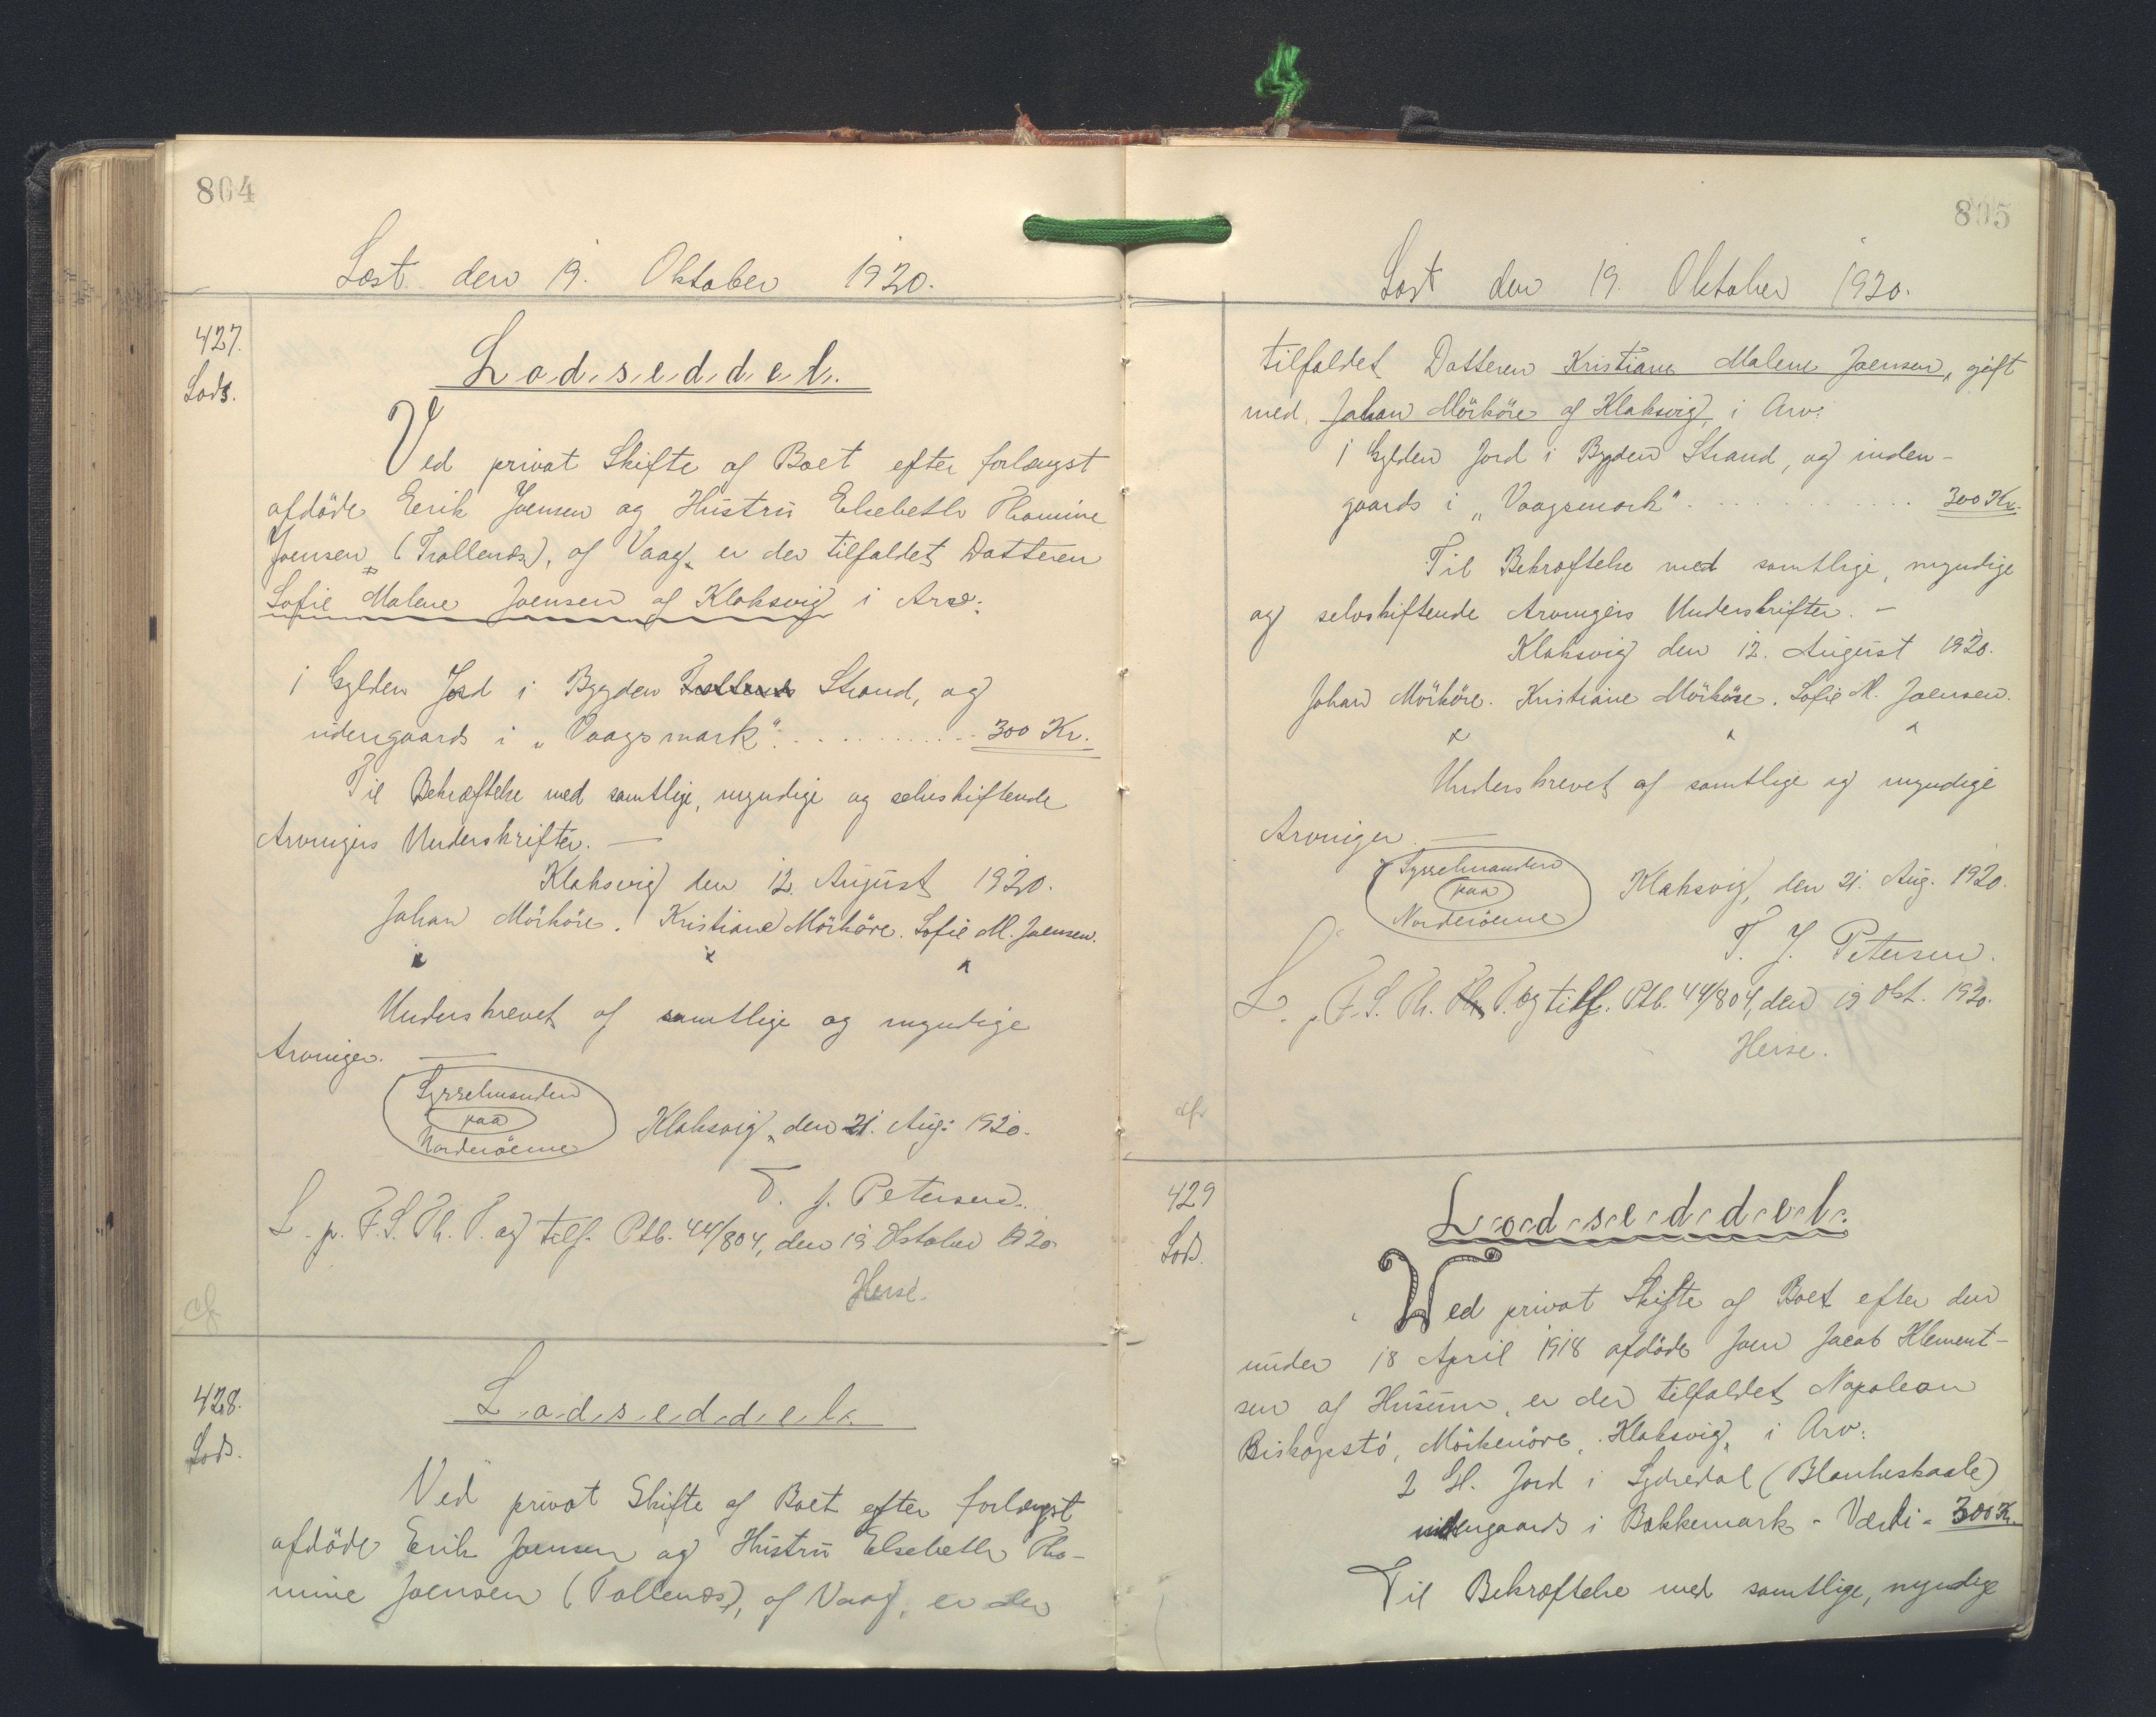 804
Læst den 19. Oktober 1920.
427.
Lods.
Lodseddel.
Ved privat Skifte af Boet efter forlængst
afdöde Eerik Joensen og Hustru Elsebeth Thomine
Joensen (Trollenæs), af Vaag, er der tilfaldet Datteren
Sofie Malene Joensen af Klaksvig i Arv:
1 Gylden Jord i Bygden Strand, og
udengaards i „Vaagsmark“ . . . . . . . . . . . 300 Kr.
Til Bekræftelse med samtlige, myndige og selvskiftende
Arvingers Underskrifter. —
Klaksvig den 12. August 1920.
Johan Mörköre. Kristiane Mörköre. Sofie M. Joensen.
Underskrevet af samtlige og myndige
Arvinger. —
Sysselmanden
paa
Norderöerne
Klaksvig, den 21. Aug. 1920.
T. J. Petersen.
L. p. F. S. Th. T. og tilf. Ptb. 44/804, den 19 Oktober 1920.
Heise.
cf
428.
Lods.
Lodseddel.
Ved privat Skifte af Boet efter forlængst
afdöde Erik Joensen og Hustru Elsebeth Tho-
mine Joensen (Tollenæs), af Vaag, er der
805
Læst den 19. Oktober 1920.
tilfaldet Datteren Kristiane Malene Joensen, gift
med Johan Mörköre af Klaksvig, i Arv:
1 Gylden Jord i Bygden Strand, og inden-
gaards i „Vaagsmark“ . . . . . . . . . . . . 300 Kr.
Til Bekræftelse med samtlige, myndige
og selvskiftende Arvingers Underskrifter. —
Klaksvig den 12. August 1920.
Johan Mörköre. Kristiane Mörköre. Sofie M. Joensen.
Underskrevet af samtlige og myndige
Arvinger. —
Sysselmanden
paa
Norderöerne
Klaksvig, den 21. Aug. 1920.
T. J. Petersen.
L. p. F. S. Th. T. og tilf. Ptb. 44/804, den 19 Okt. 1920.
Heise.
cfr
429
Lods.
Lodseddel.
Ved privat Skifte af Boet efter den
under 18 April 1918 afdöde Joen Jacob Klement-
sen af Husum, er der tilfaldet Napoleon
Biskopstö, Mörkenöre, Klaksvig, i Arv:
2 Gl. Jord i Sydredal (Blankeskaale)
indengaards i Bakkemark - Værdi - 300 Kr.
Til Bekræftelse med samtlige, myndige